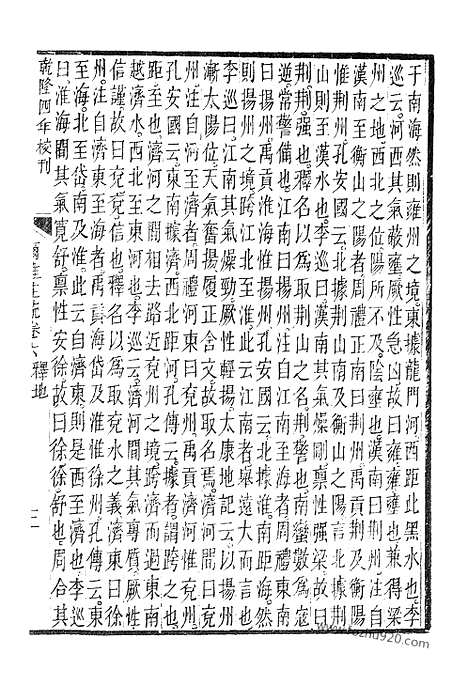 于南海然則雍州之境東據龍門河西距此黑水也李
巡云河西其氣蔽壅厥性急凶故曰雍雍壅也兼得梁
州之地西北之位陽所不及陰壅也漢南曰荆州注自
漢南至衡山之陽者周禮正南曰荆州禹貢荆及衡陽
惟荆州孔安國云北據荆山南及衡山之陽言北據荆
山則至漢水也李巡曰漢南其氣燥剛稟性强梁故曰
荆荆强也釋名以為取荆山之名荆警也南蠻數為寇
逆常警備也江南曰揚州注自江南至海者周禮東南
曰揚州禹貢淮海惟揚州孔安國云北據淮南距海然
則揚州之境跨江北至淮此云江南者舉遠大而言也
李巡曰江南其氣燥勁厥性輕揚太康地記云以揚州
漸太陽位天氣奮揚履正含文故取名焉濟河間曰兗
州注自河東至濟者周禮河東曰兗州禹貢濟河惟兗州
孔安國云東南據濟西北距河孔傳云據者謂跨之也
距至也濟河之間相去路近兗州之境跨濟而過東南
越濟水西北至東河也李巡云濟河間其氣專質厥性
信謹故曰兗兗信也釋名以為取兗水之義濟東曰徐
州注自濟東至海者禹貢海岱及淮惟徐州孔傳云東
至海北至岱南及淮此云自濟東則是西至濟也李巡
曰淮海間其氣寬舒稟性安徐故曰徐徐舒也周合其
乾隆四年校刊
爾雅注疏卷六釋地